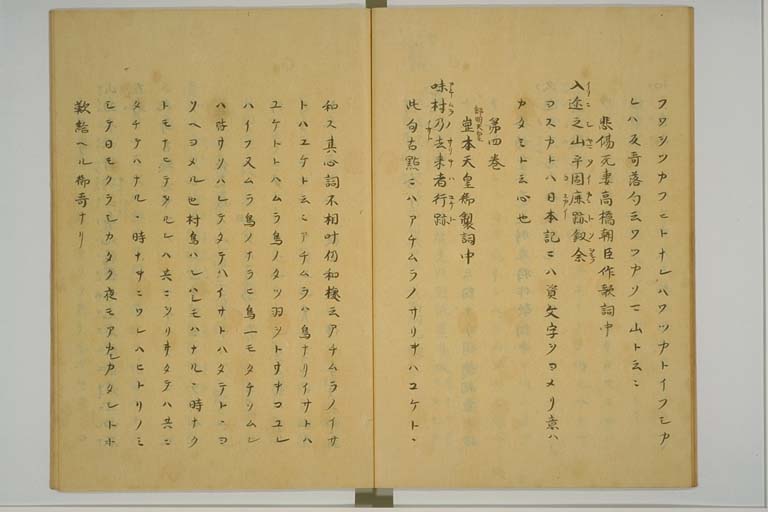 フワシツカフヒトナレハワツカトイフモカ
レハ反哥落句ニワツカソマ山ト云ニ
悲傷死妻高橋朝臣作歌詞中
入途之山乎因鹿跡叙余
ヨスカトハ日本記ニハ資文字ヲヨメリ意ハ
カタミト云心也
第四巻
舒明天皇
崗本天皇御製詞中
味村乃去来者行跡
此句古點ニハアチムラノサリキハユケト、
和ス其心詞不相叶仍和換云アチムラノイサ
トハユケト云ニアチムラハ鳥ナリイサトハ
ユケトトハムラ鳥ノタツ羽ヲトサキコユレ
ハイフ又ムラ鳥ノナラヒ鳥一モタチソムレ
ハ皆サソハレテタテハイサトハタテト、ヨ
ソヘヨメル也村鳥ハ
時ナク
トモナヒテ
共ニソリキタテハ共ニ
タチテハナル、時ナキニワレハヒトリノミ
シテ日モクラシカタク夜モアカシカタシトホ
歎給ヘル御哥ナリ